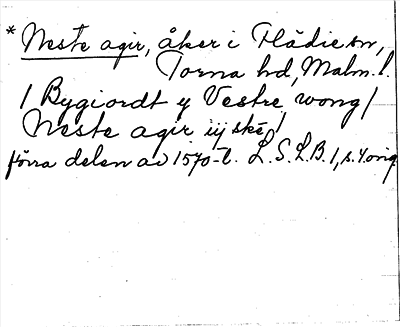 * Neste agir, åker i Flädie sn,
Torna hd, Malm. l.
/ Bygiordt y Vestre wong /
Neste agir iij ske /
förra delen av 1570-t. L.S.L.B. 1, s. 4 orig.